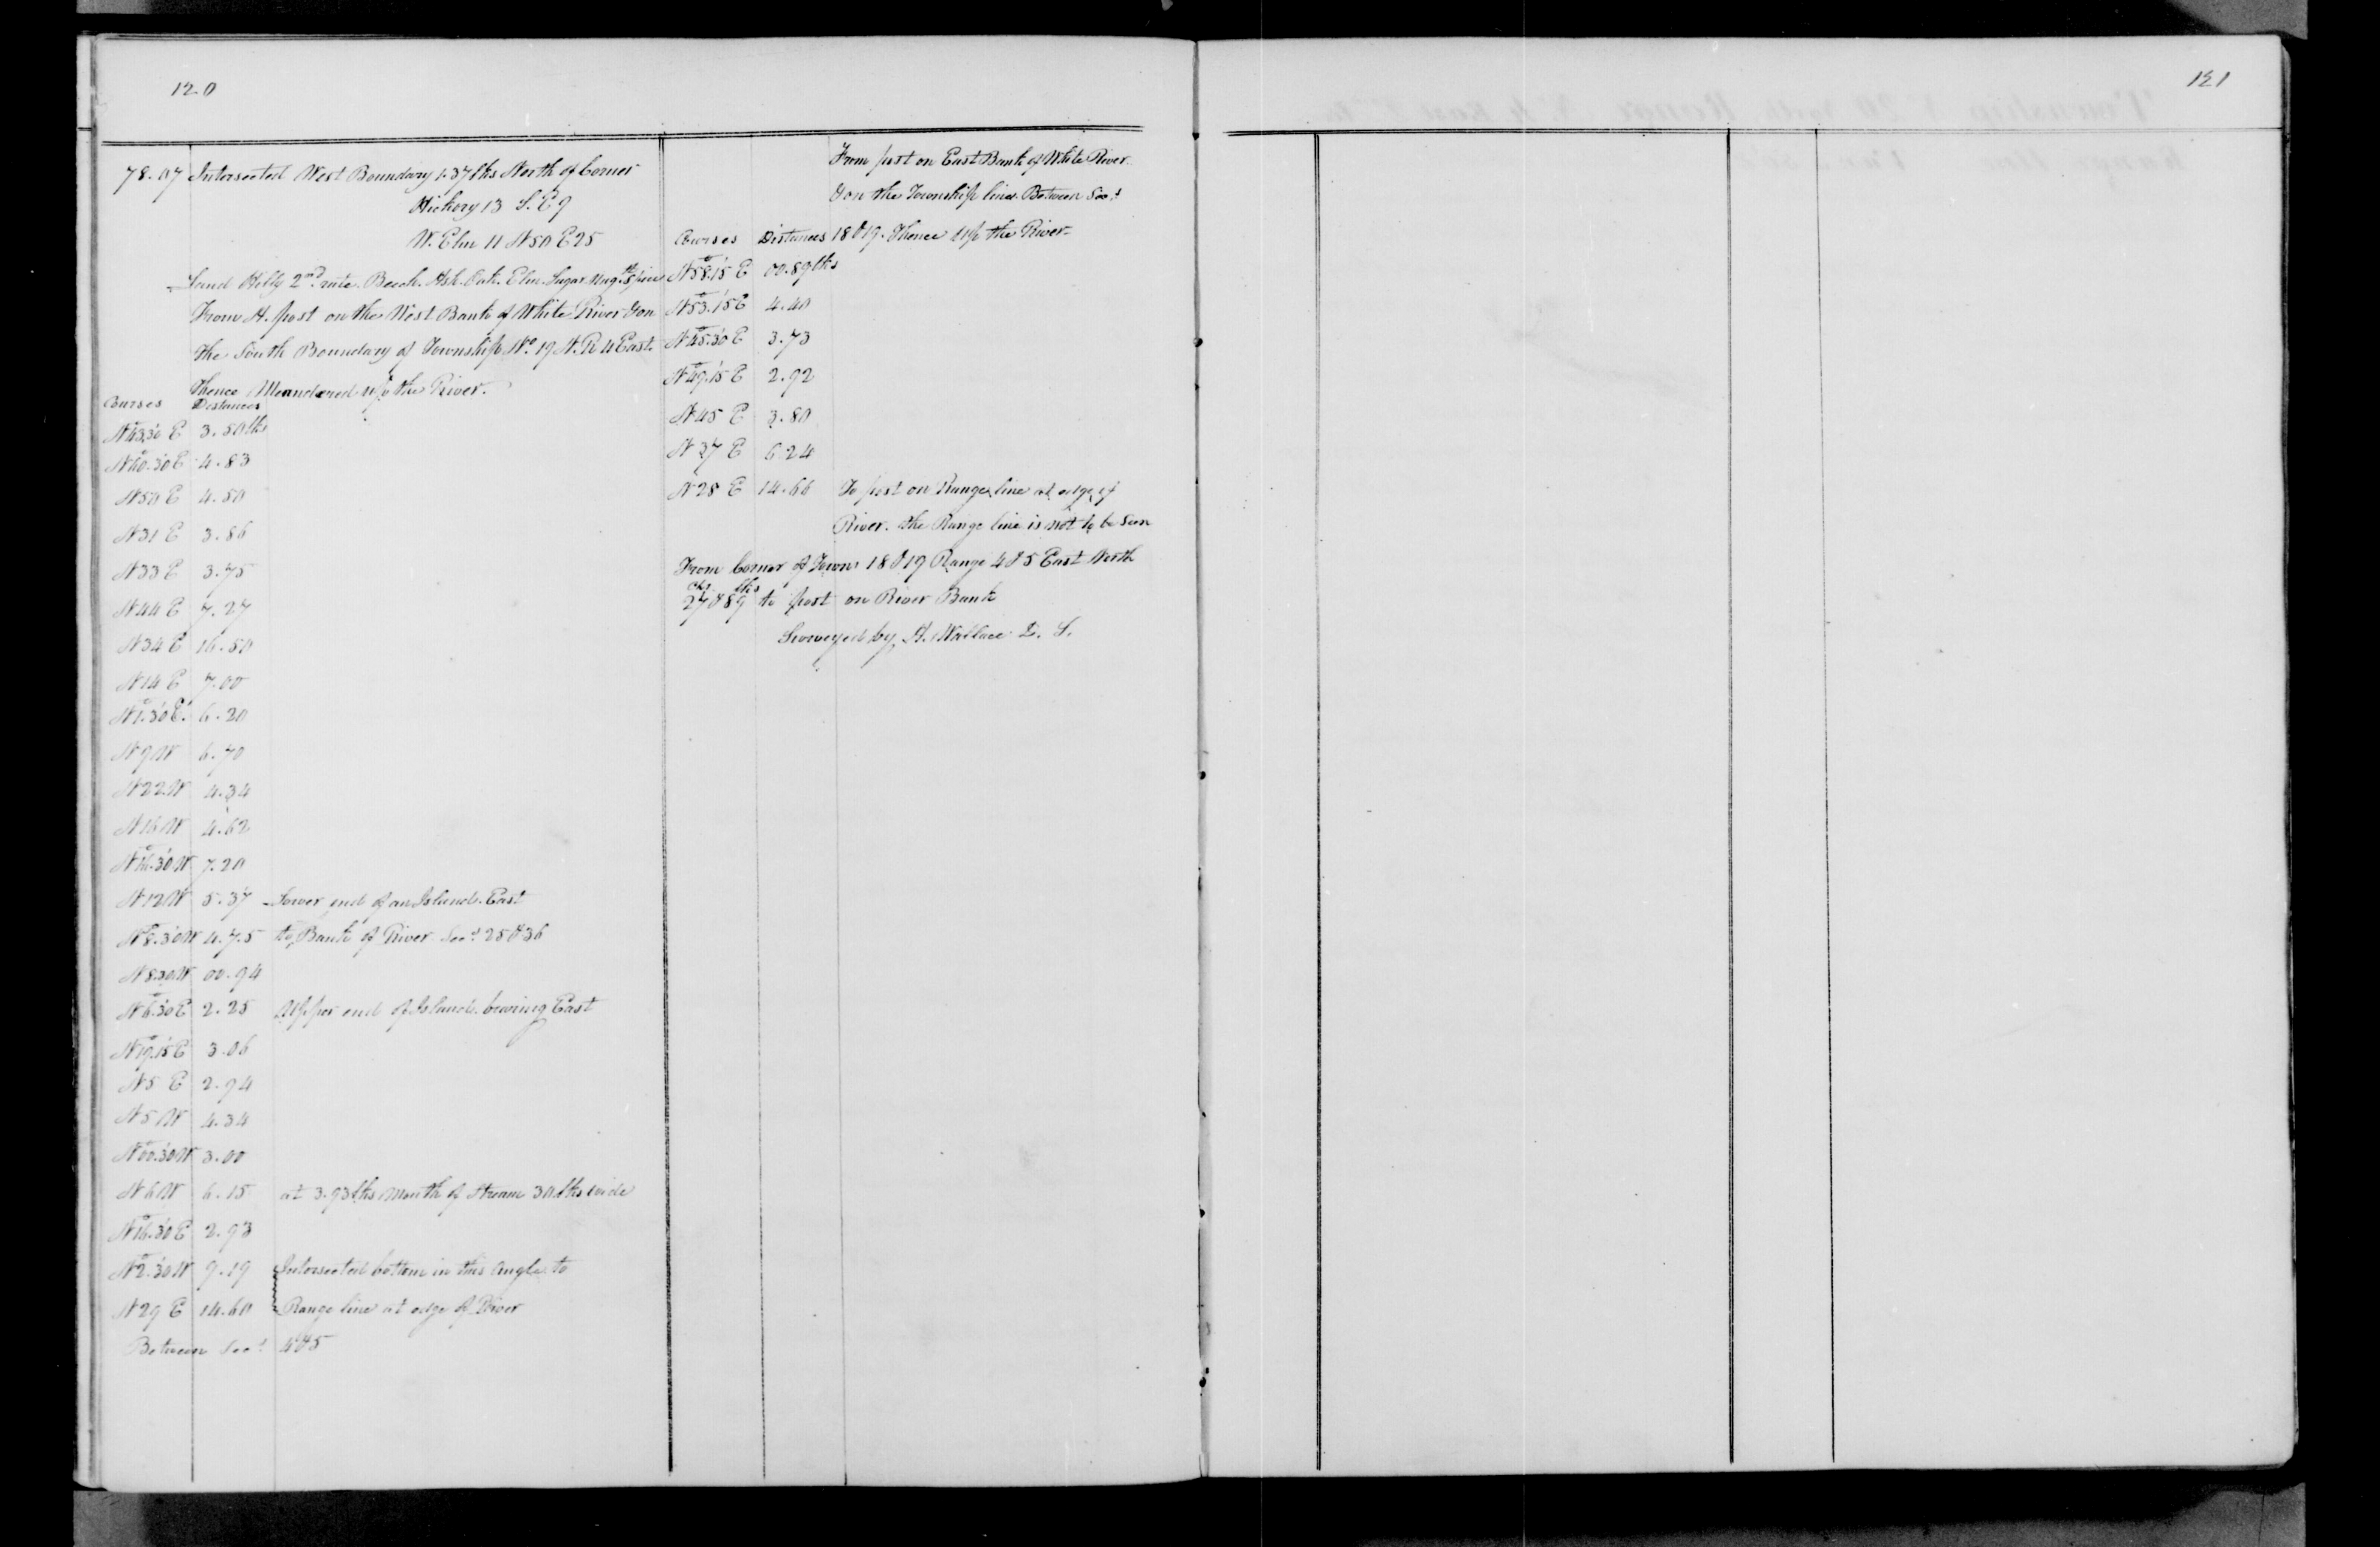 120
78.07 Intersected West Boundary 1.37 lks North of Corner
Hickory 13 S. E 9
W. Elm 11 N 50 E 25
Land Hilly 2nd rate. Beech. Ash. Oak. Elm. Sugar
From A. post on the West Bank of White River & on
the South Boundary of Township No. 19 N. R 4 East.
Thence Meandered up the River.
Courses Distances
N 43.30 E 3.50 lks
N 40.30 E 4.83
N 50 E 4.50
N 31 E 3.86
N 33 E 3.75
N 44 E 7.27
N 34 E 16.50
N 14 E 7.00
N 1.30 E. 6.20
N 9 W 6.70
N 22 W 4.34
N 16 W 4.62
N 16.30 W 7.20
N 12 W 5.37 Lower end of an Island. East
N 8.30 W 4.75 to Bank of River Secs 25 & 36
N 8.30 W 00.94
N 6.30 E 2.25 Upper end of Island. bearing East
N 19.15 E 3.06
N 5 E 2.94
N 5 W 4.34
N 00.30 W 3.00
N 6 W 6.15 at 3.93 lks Mouth of Stream 30 lks wide
N 16.30 E 2.93
N 2.30 W 9.19 Intersected bottom in this Angle to
N 29 E 14.60 Range line at edge of River
Between Secs 4 & 5
From post on East Bank of White River
& on the Township line. Between Secs
Courses Distances 18 & 19. Thence Up the River
N 58.15 E 00.89 lks
N 53.15 E 4.40
N 45.30 E 3.73
N 49.15 E 2.92
N 45 E 3.80
N 37 E 6.24
N 28 E 14.66 To post on Range line at edge of
River. the Range line is not to be Seen
From Corner of Towns 18 & 19 Range 4 & 5 East North
chs lks
27 & 89 to post on River Bank
Surveyed by, A. Wallace D. S.
121